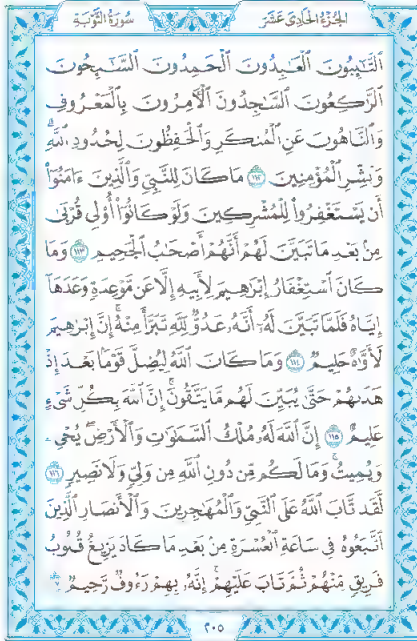 الجزء الحادي عشر
سورة التوبة
التَّٰٓئِبُونَ الْعَٰبِدُونَ الْحَٰمِدُونَ السَّٰٓئِحُونَ
الرَّٰكِعُونَ السَّٰجِدُونَ الْءَامِرُونَ بِالْمَعْرُوفِ
وَالنَّاهُونَ عَنِ الْمُنكَرِ وَالْحَٰفِظُونَ لِحُدُودِ اللَّهِ
وَبَشِّرِ الْمُؤْمِنِينَ ١١٢ مَا كَانَ لِلنَّبِيِّ وَالَّذِينَ ءَامَنُوٓا۟
أَن يَسْتَغْفِرُوا۟ لِلْمُشْرِكِينَ وَلَوْ كَانُوٓا۟ أُو۟لِي قُرْبَىٰ
مِنۢ بَعْدِ مَا تَبَيَّنَ لَهُمْ أَنَّهُمْ أَصْحَٰبُ الْجَحِيمِ ١١٣ وَمَا
كَانَ اسْتِغْفَارُ إِبْرَٰهِيمَ لِأَبِيهِ إِلَّا عَن مَّوْعِدَةٍ وَعَدَهَآ
إِيَّاهُ فَلَمَّا تَبَيَّنَ لَهُۥٓ أَنَّهُۥ عَدُوٌّ لِّلَّهِ تَبَرَّأَ مِنْهُ ۚ إِنَّ إِبْرَٰهِيمَ
لَأَوَّٰهٌ حَلِيمٌ ١١٤ وَمَا كَانَ اللَّهُ لِيُضِلَّ قَوْمًۢا بَعْدَ إِذْ
هَدَىٰهُمْ حَتَّىٰ يُبَيِّنَ لَهُم مَّا يَتَّقُونَ ۚ إِنَّ اللَّهَ بِكُلِّ شَيْءٍ
عَلِيمٌ ١١٥ إِنَّ اللَّهَ لَهُۥ مُلْكُ السَّمَٰوَٰتِ وَالْأَرْضِ ۖ يُحْيِۦ
وَيُمِيتُ ۚ وَمَا لَكُم مِّن دُونِ اللَّهِ مِن وَلِيٍّ وَلَا نَصِيرٍ ١١٦
لَّقَد تَّابَ اللَّهُ عَلَى النَّبِيِّ وَالْمُهَٰجِرِينَ وَالْأَنصَارِ الَّذِينَ
اتَّبَعُوهُ فِي سَاعَةِ الْعُسْرَةِ مِنۢ بَعْدِ مَا كَادَ يَزِيغُ قُلُوبُ
فَرِيقٍ مِّنْهُمْ ثُمَّ تَابَ عَلَيْهِمْ ۚ إِنَّهُۥ بِهِمْ رَءُوفٌ رَّحِيمٌ
٢٠٥